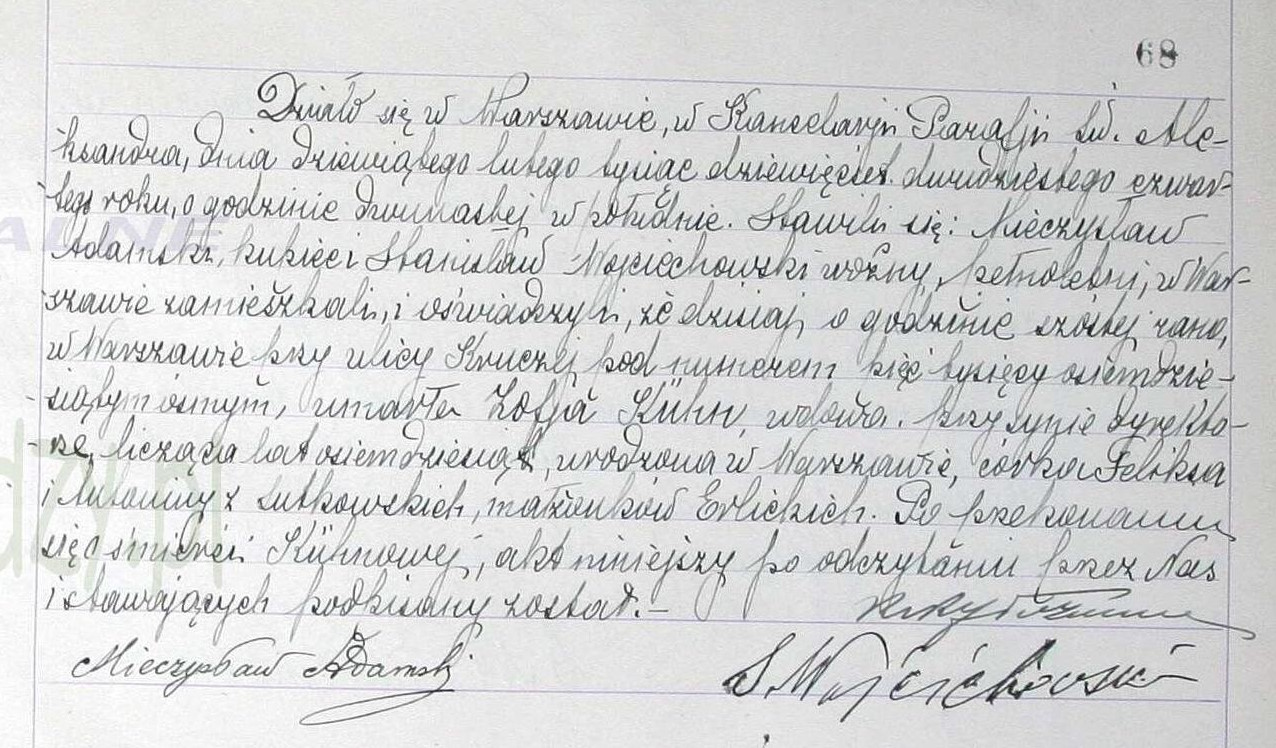 68
Działo się w Warszawie, w Kancelarji Parafji św. Ale-
ksandra, dnia dziewiątego lutego tysiąc dziewięćset dwudziestego czwar-
tego roku, o godzinie dwunastej w południe. Stawili się: Mieczysław
Adamski, kupiec i Stanisław Wojciechowski woźny, pełnoletni, w War-
szawie zamieszkali, i oświadczyli, że dzisiaj o godzinie szóstej rano,
w Warszawie przy ulicy Kruczej pod numerem pięć tysięcy osiemdzie-
siątym ósmym, umarła Zofja Kühn, wdowa. przy synie dyrekto-
rze, licząca lat osiemdziesiąt, urodzona w Warszawie, córka Feliksa
i Antoniny z Lutkowskich, małżonków Erlickich. Po przekonaniu
się o śmierci Kühnowej, akt niniejszy po odczytaniu przez Nas
i stawających podpisany został.-
Mieczysław Adamski
S. Wojciechowski
ALNE
dzy.pl